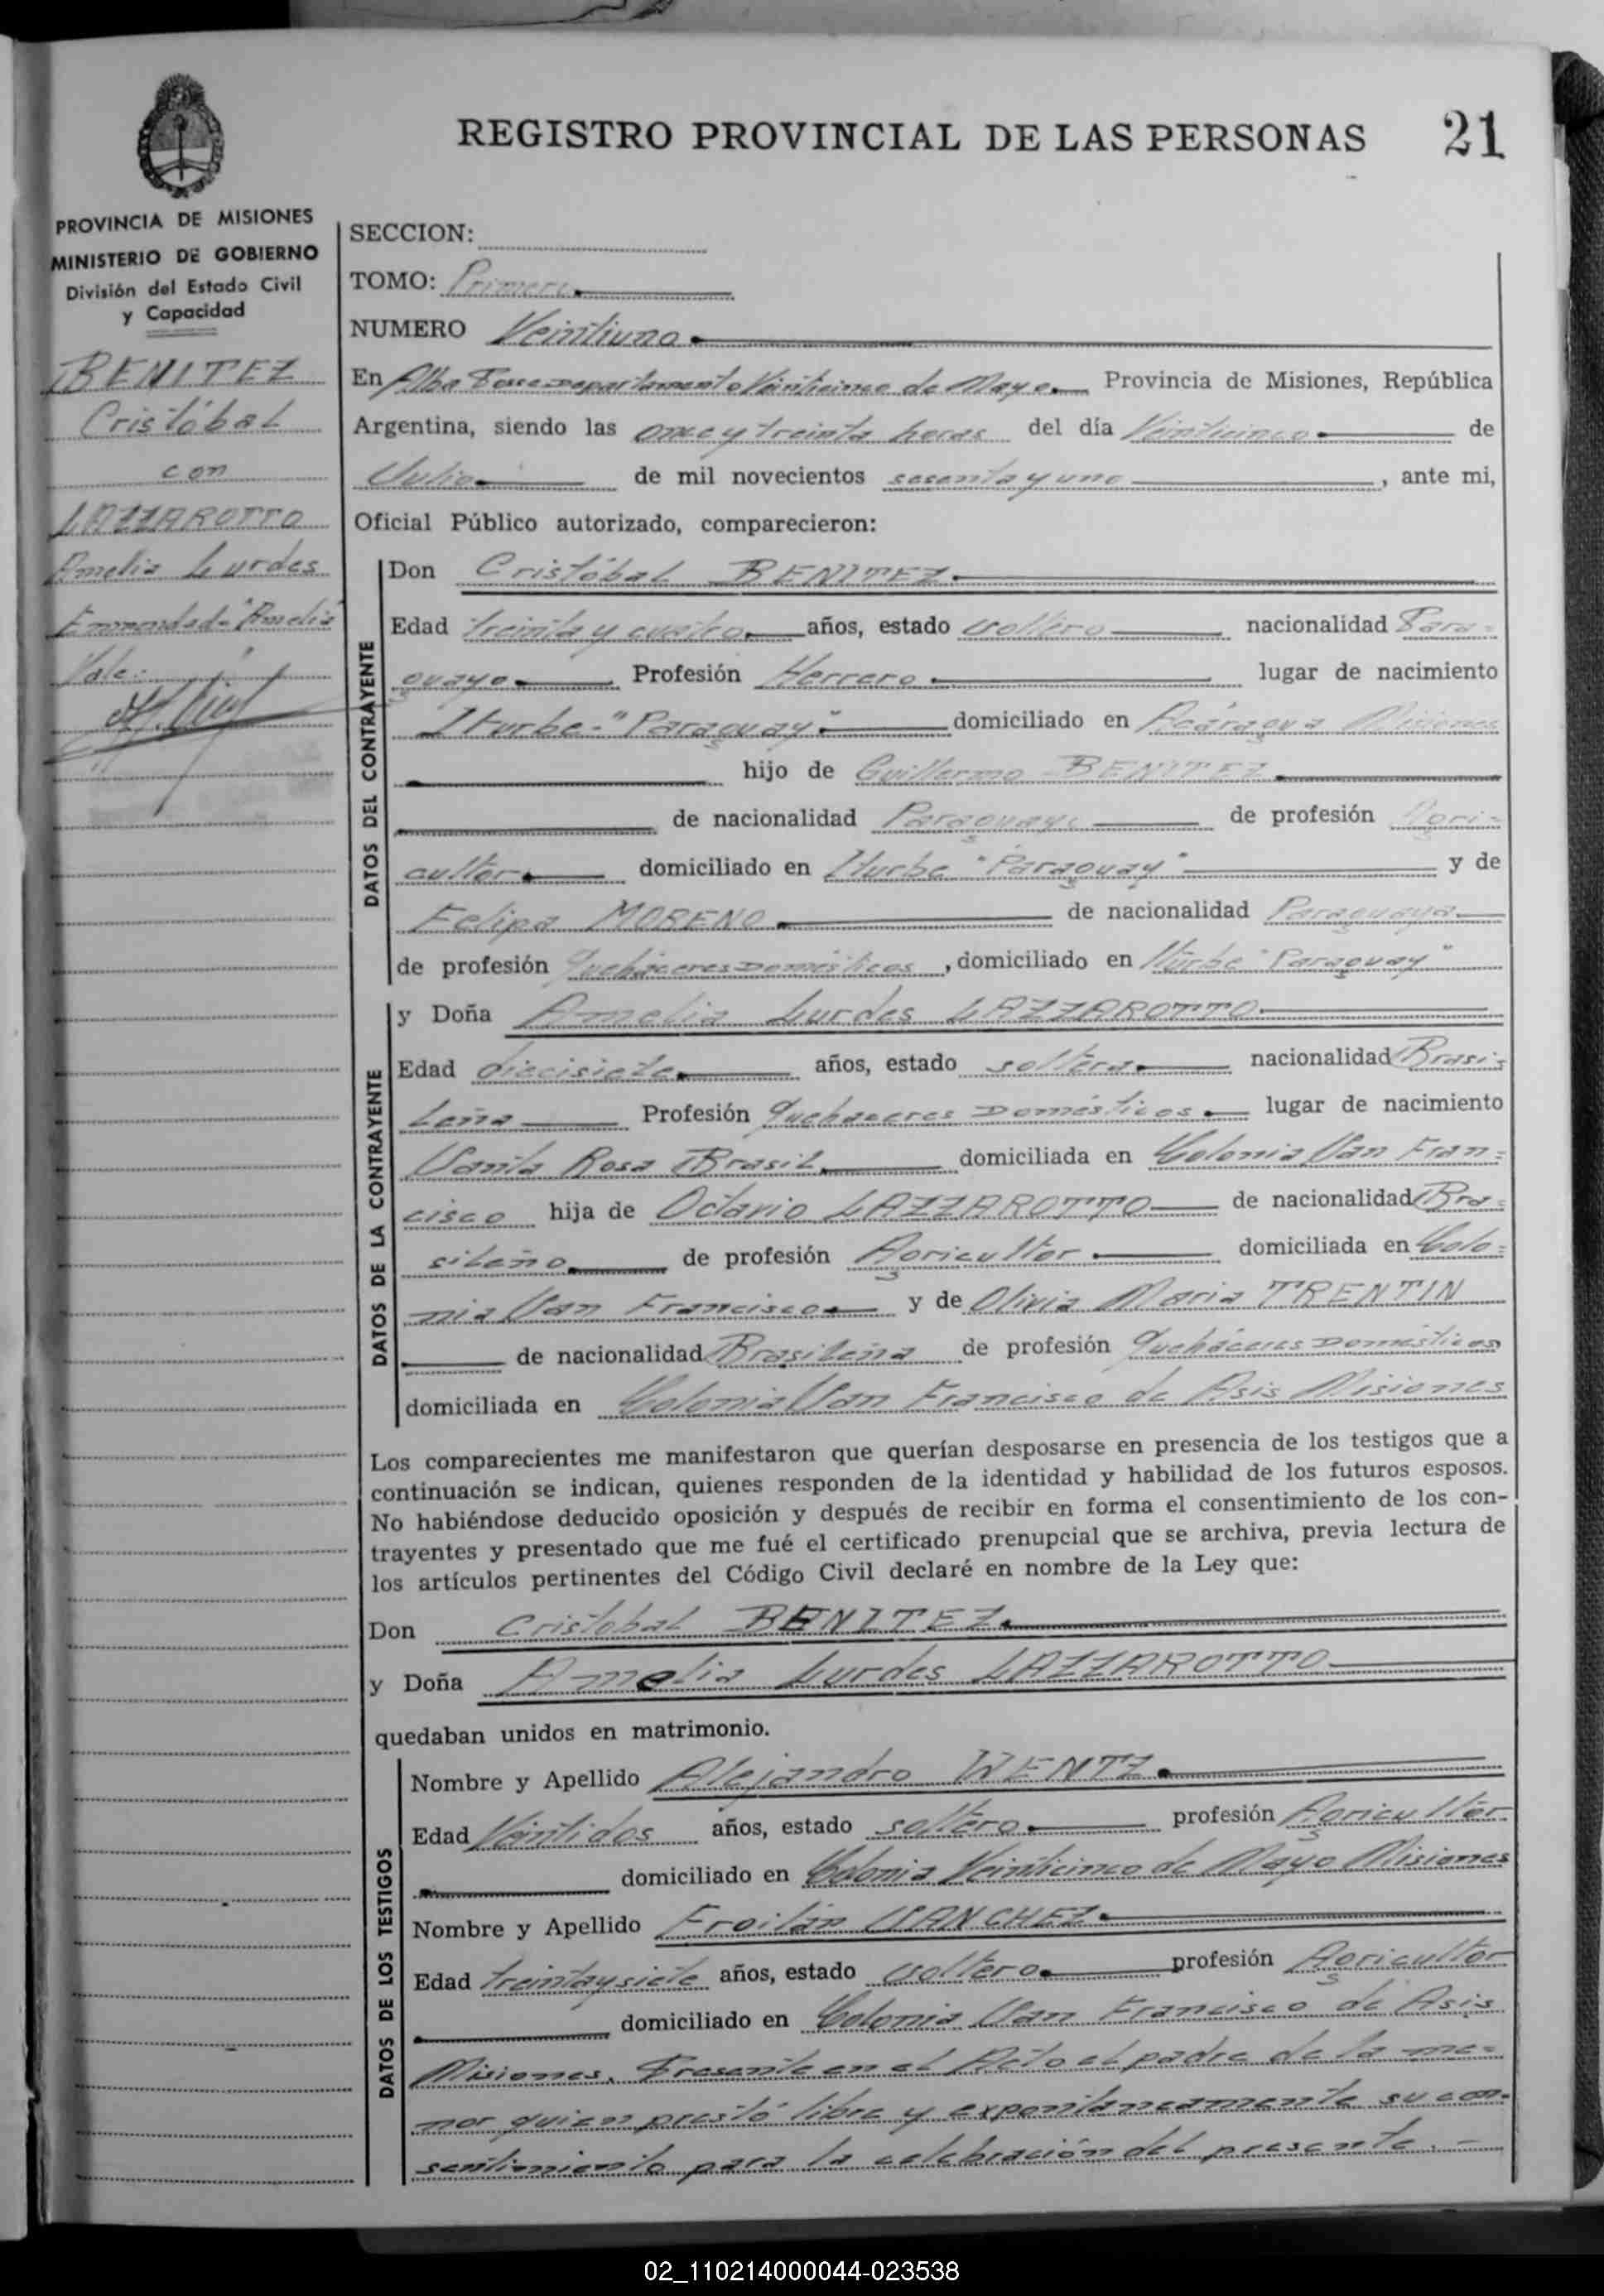 REGISTRO PROVINCIAL DE LAS PERSONAS 21
PROVINCIA DE MISIONES
MINISTERIO DE GOBIERNO
División del Estado Civil
y Capacidad
BENITEZ
Cristóbal
con
LAZZAROTTO
Amelia Lurdes
Enmendado "Amelia"
Vale:
SECCION:
TOMO: Primero
NUMERO Veintiuno
En Alba Posse Departamento Veinticinco de Mayo Provincia de Misiones, República
Argentina, siendo las once y treinta horas del día Veinticinco de
Julio de mil novecientos sesenta y uno, ante mi,
Oficial Público autorizado, comparecieron:
DATOS DEL CONTRAYENTE
Don Cristóbal BENITEZ
Edad treinta y cuatro años, estado soltero nacionalidad Para=
guayo Profesión Herrero lugar de nacimiento
Iturbe "Paraguay" domiciliado en Acaragua Misiones
hijo de Guillermo BENITEZ
de nacionalidad Paraguayo de profesión Agri=
cultor domiciliado en Iturbe "Paraguay" y de
Felipa MORENO de nacionalidad Paraguaya
de profesión Quehaceres Domésticos, domiciliado en Iturbe "Paraguay"
DATOS DE LA CONTRAYENTE
y Doña Amelia Lurdes LAZZAROTTO
Edad diecisiete años, estado soltera nacionalidad Brasi=
leña Profesión Quehaceres Domésticos lugar de nacimiento
Santa Rosa Brasil domiciliada en Colonia San Fran=
cisco hija de Octavio LAZZAROTTO de nacionalidad Bra=
sileño de profesión Agricultor domiciliada en Colo=
nia San Francisco y de Olivia Maria TRENTIN
de nacionalidad Brasileña de profesión Quehaceres Domésticos
domiciliada en Colonia San Francisco de Asis Misiones
Los comparecientes me manifestaron que querían desposarse en presencia de los testigos que a
continuación se indican, quienes responden de la identidad y habilidad de los futuros esposos.
No habiéndose deducido oposición y después de recibir en forma el consentimiento de los con-
trayentes y presentado que me fué el certificado prenupcial que se archiva, previa lectura de
los artículos pertinentes del Código Civil declaré en nombre de la Ley que:
Don Cristobal BENITEZ
y Doña Amelia Lurdes LAZZAROTTO
quedaban unidos en matrimonio.
DATOS DE LOS TESTIGOS
Nombre y Apellido Alejandro WENTZ
Edad Veintidos años, estado soltero profesión Agricultor
domiciliado en Colonia Veinticinco de Mayo Misiones
Nombre y Apellido Froilán SANCHEZ
Edad treinta y siete años, estado soltero profesión Agricultor
domiciliado en Colonia San Francisco de Asis
Misiones. Presente en el Acto el padre de la me=
nor quien prestó libre y expontaneamente su con=
sentimiento para la celebración del presente.-
02_110214000044-023538